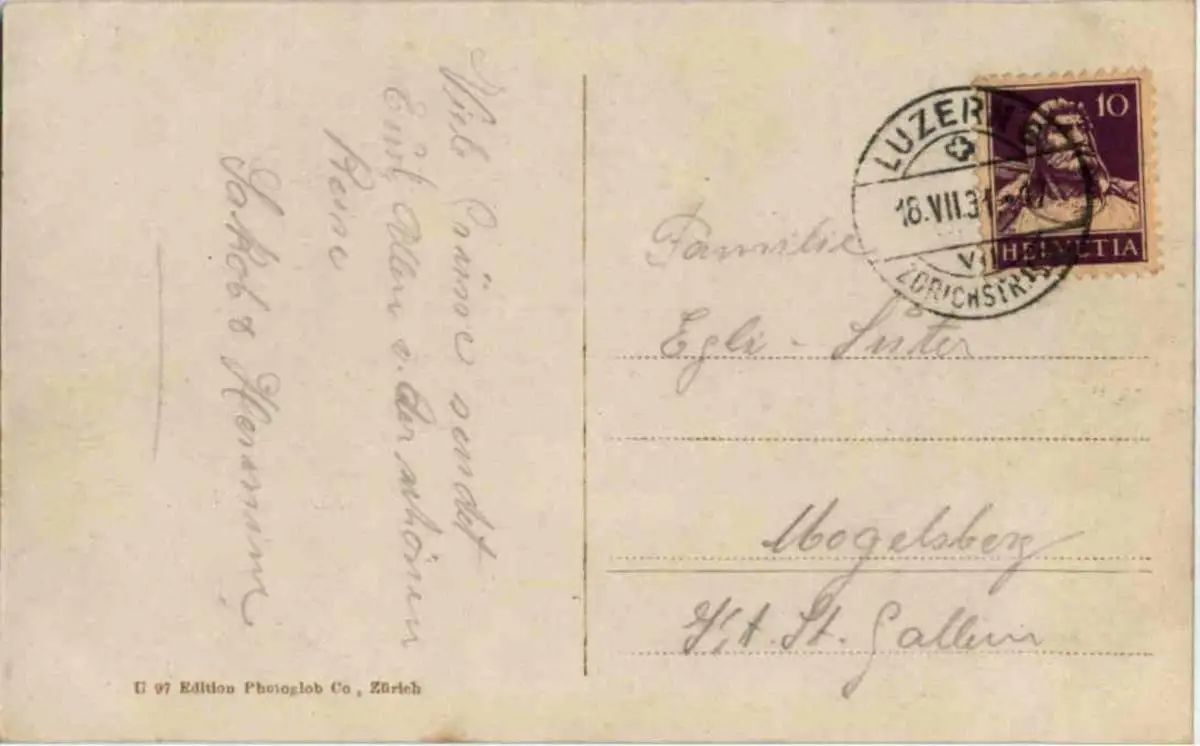 Viele Grüsse sendet
Euch Allen v. der schönen
Reise
Jakob & Hermine
LUZERN
18.VII.31
VII
ZÜRICHSTR
10
HELVETIA
Familie
Egli - Suter
Mogelsberg
Kt. St. Gallen
U 97 Edition Photoglob Co, Zürich